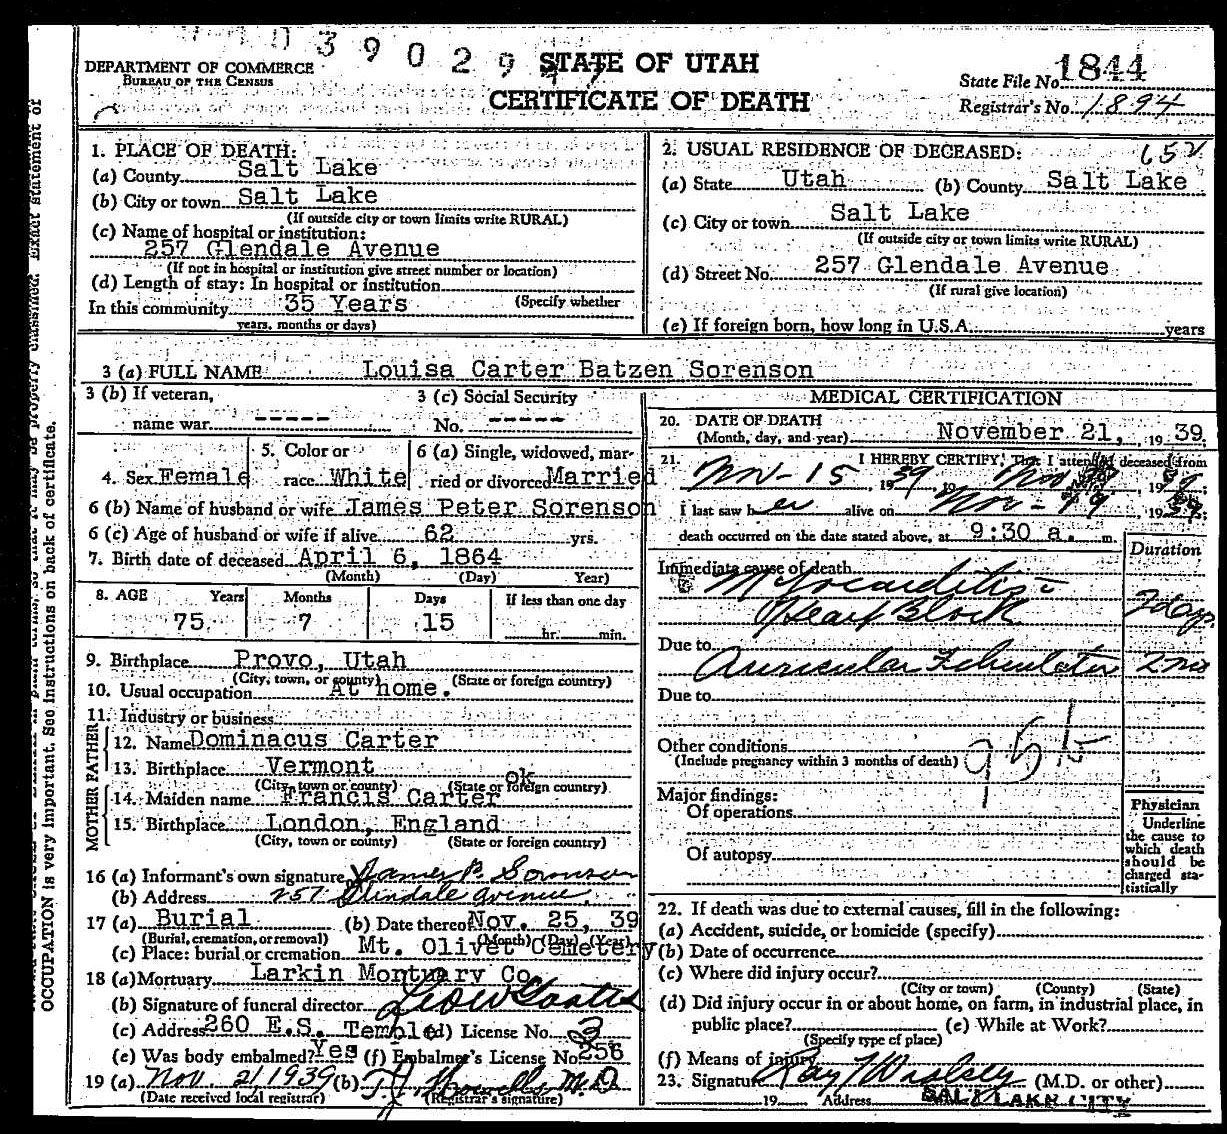 0 3 9 0 2 9
STATE OF UTAH
CERTIFICATE OF DEATH
DEPARTMENT OF COMMERCE
BUREAU OF THE CENSUS
State File No. 1844
Registrar's No. 1894
1. PLACE OF DEATH:
(a) County Salt Lake
(b) City or town Salt Lake
(If outside city or town limits write RURAL)
(c) Name of hospital or institution:
257 Glendale Avenue
(If not in hospital or institution give street number or location)
(d) Length of stay: In hospital or institution
In this community 35 Years (Specify whether
years, months or days)
2. USUAL RESIDENCE OF DECEASED:
(a) State Utah (b) County Salt Lake
(c) City or town Salt Lake
(If outside city or town limits write RURAL)
(d) Street No. 257 Glendale Avenue
(If rural give location)
(e) If foreign born, how long in U.S.A. years
3 (a) FULL NAME Louisa Carter Batzen Sorenson
3 (b) If veteran,
name war -----
3 (c) Social Security
No. -----
4. Sex Female
5. Color or
race White
6 (a) Single, widowed, mar-
ried or divorced Married
6 (b) Name of husband or wife James Peter Sorenson
6 (c) Age of husband or wife if alive 62 yrs.
7. Birth date of deceased April 6, 1864
(Month) (Day) Year)
8. AGE Years Months Days If less than one day
75 7 15 hr. min.
9. Birthplace Provo, Utah
(City, town, or county) (State or foreign country)
10. Usual occupation At home.
11. Industry or business
FATHER
12. Name Dominacus Carter
13. Birthplace Vermont
(City, town or county) (State or foreign country)
MOTHER
14. Maiden name Francis Carter ok
15. Birthplace London, England
(City, town or county) (State or foreign country)
16 (a) Informant's own signature James P. Sorenson
(b) Address 257 Glendale Avenue.
17 (a) Burial (b) Date thereof Nov. 25, 39
(Burial, cremation, or removal) (Month) (Day) (Year)
(c) Place: burial or cremation Mt. Olivet Cemetery
18 (a) Mortuary Larkin Mortuary Co.
(b) Signature of funeral director
(c) Address 260 E.S. Temple (d) License No. 3
(e) Was body embalmed? Yes (f) Embalmer's License No. 256
19 (a) Nov. 21, 1939 (b) M.D.
(Date received local registrar) (Registrar's signature)
MEDICAL CERTIFICATION
20. DATE OF DEATH
(Month, day, and year) November 21, 19 39
21. I HEREBY CERTIFY, That I attended deceased from
Nov - 15, 19 39, to Nov 19
I last saw h er alive on Nov - 19 19 39;
death occurred on the date stated above, at 9:30 a. m.
Duration
Immediate cause of death
Myocarditis -
Heart Block 2 days
Due to
Auricular 2 mo
Due to
Other conditions
(Include pregnancy within 3 months of death)
95b
Major findings:
Of operations
Of autopsy
Physician
Underline
the cause to
which death
should be
charged sta-
tistically
22. If death was due to external causes, fill in the following:
(a) Accident, suicide, or homicide (specify)
(b) Date of occurrence
(c) Where did injury occur?
(City or town) (County) (State)
(d) Did injury occur in or about home, on farm, in industrial place, in
public place? (e) While at Work?
(Specify type of place)
(f) Means of injury
23. Signature (M.D. or other)
19 Address SALT LAKE CITY
OCCUPATION is very important. See instructions on back of certificate.